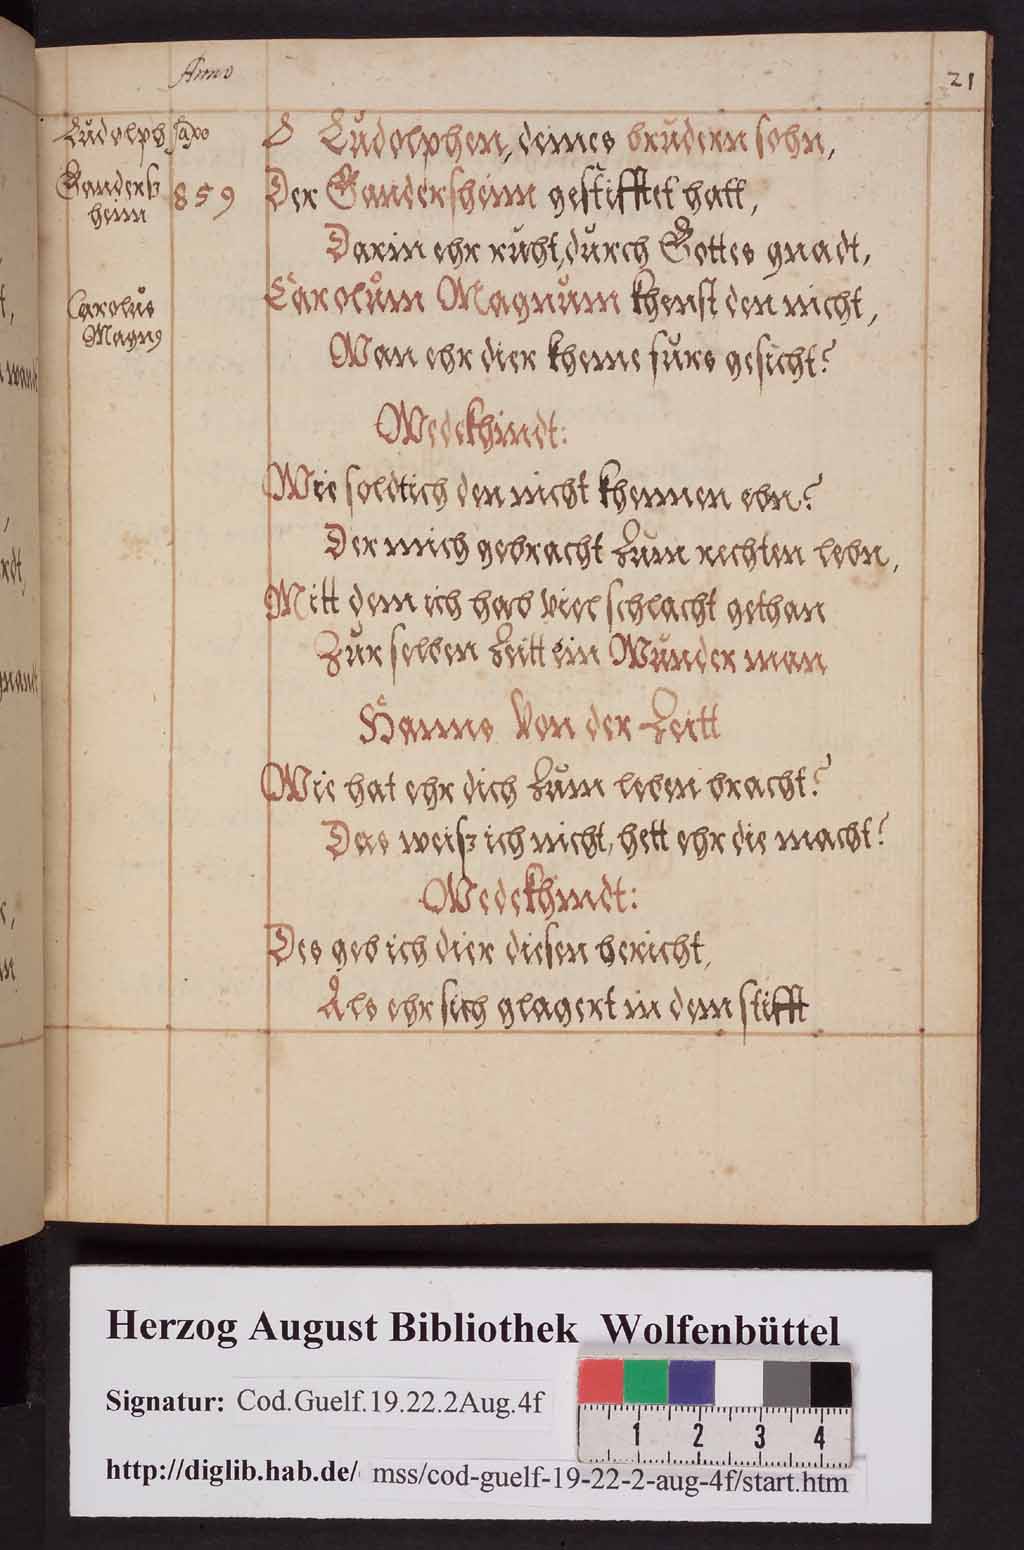 Anno
21
Ludolph Saxo
S Ludolphen, deines brudern sohn,
Ganderß
heim
859
Der Gandersheim gestifftet hatt,
Darin ehr ruht, durch Gottes gnadt,
Carolus
Magnus
Carolum Magnum khenst den nicht,
Wan ehr dier kheme furs gesicht?
Wedekhindt:
Wie soldt ich den nicht khennen ebn?
Der mich gebracht zum rechten lebn,
Mitt dem ich hab viel schlacht gethan
Zur selben Zeitt ein Wunder man
Hanns Von der Zeitt
Wie hat ehr dich zum leben bracht?
Das weiß ich nicht, hett ehr die macht?
Wedekhindt:
Des geb ich dier diesen bericht,
Als ehr sich glagert in dem stifft
Herzog August Bibliothek Wolfenbüttel
Signatur: Cod.Guelf.19.22.2Aug.4f
1 2 3 4
http://diglib.hab.de/ mss/cod-guelf-19-22-2-aug-4f/start.htm